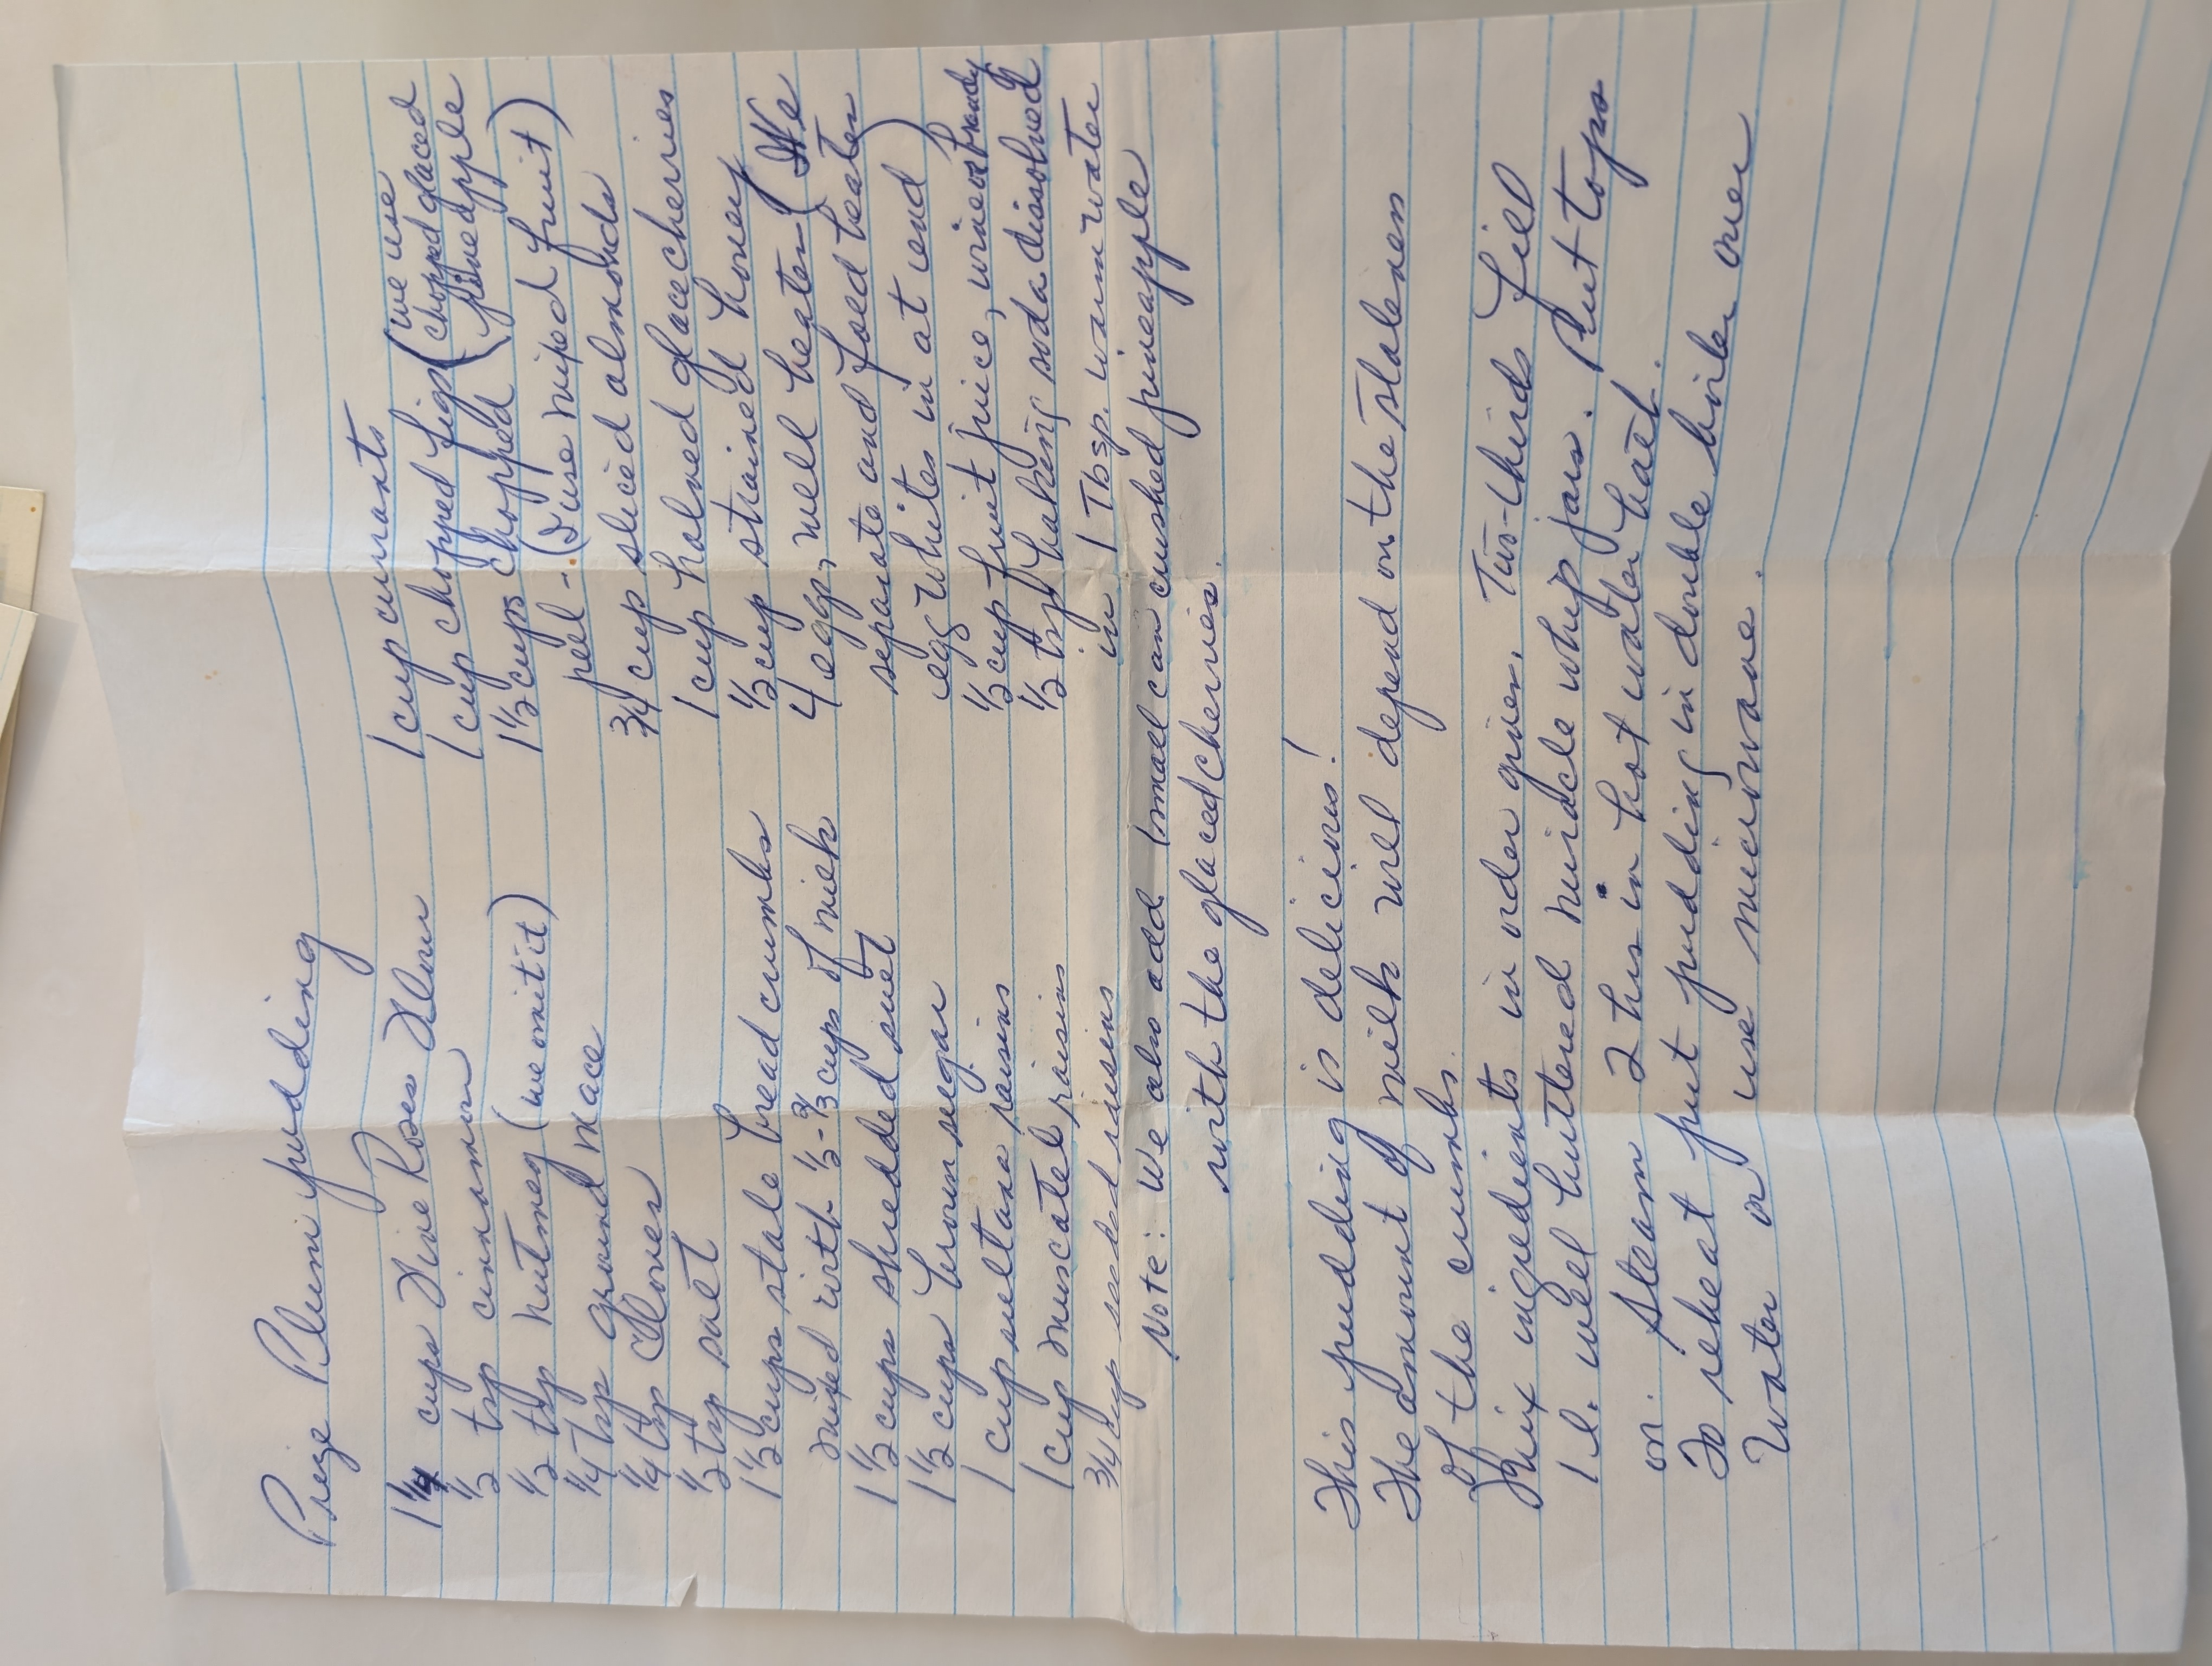 Prize Plum pudding
1 1/4 cups Five Roses Flour
1/2 tsp cinnamon
1/2 tsp nutmeg (we omit it)
1/4 tsp ground mace
1/4 tsp Cloves
1/2 tsp salt
1 1/2 cups stale bread crumbs
mixed with 1/2 - 2/3 cups of milk
1 1/2 cups shredded suet
1 1/2 cups brown sugar
1 cup sultana raisins
1 cup muscatel raisins
3/4 cup seeded raisins
1 cup currants
1 cup chopped figs (we use
chopped glaced
pineapple
1 1/2 cups chopped
peel - (I use mixed fruit)
3/4 cup sliced almonds
1 cup halved glace cherries
1/2 cup strained honey
4 eggs, well beaten (We
separate and feed beaten
egg whites in at end)
1/2 cup fruit juice, wine or brandy
1/2 tsp baking soda dissolved
in 1 Tbsp. warm water
Note: We also add 1 small can crushed pineapple
with the glaced cherries.
This pudding is delicious!
The amount of milk will depend on the staleness
of the crumbs.
Mix ingredients in order given. Two-thirds fill
1 lb. well buttered miracle whip jars. Put tops
on. Steam 2 hrs in hot water bath.
To reheat put pudding in double boiler over
water or use microwave.